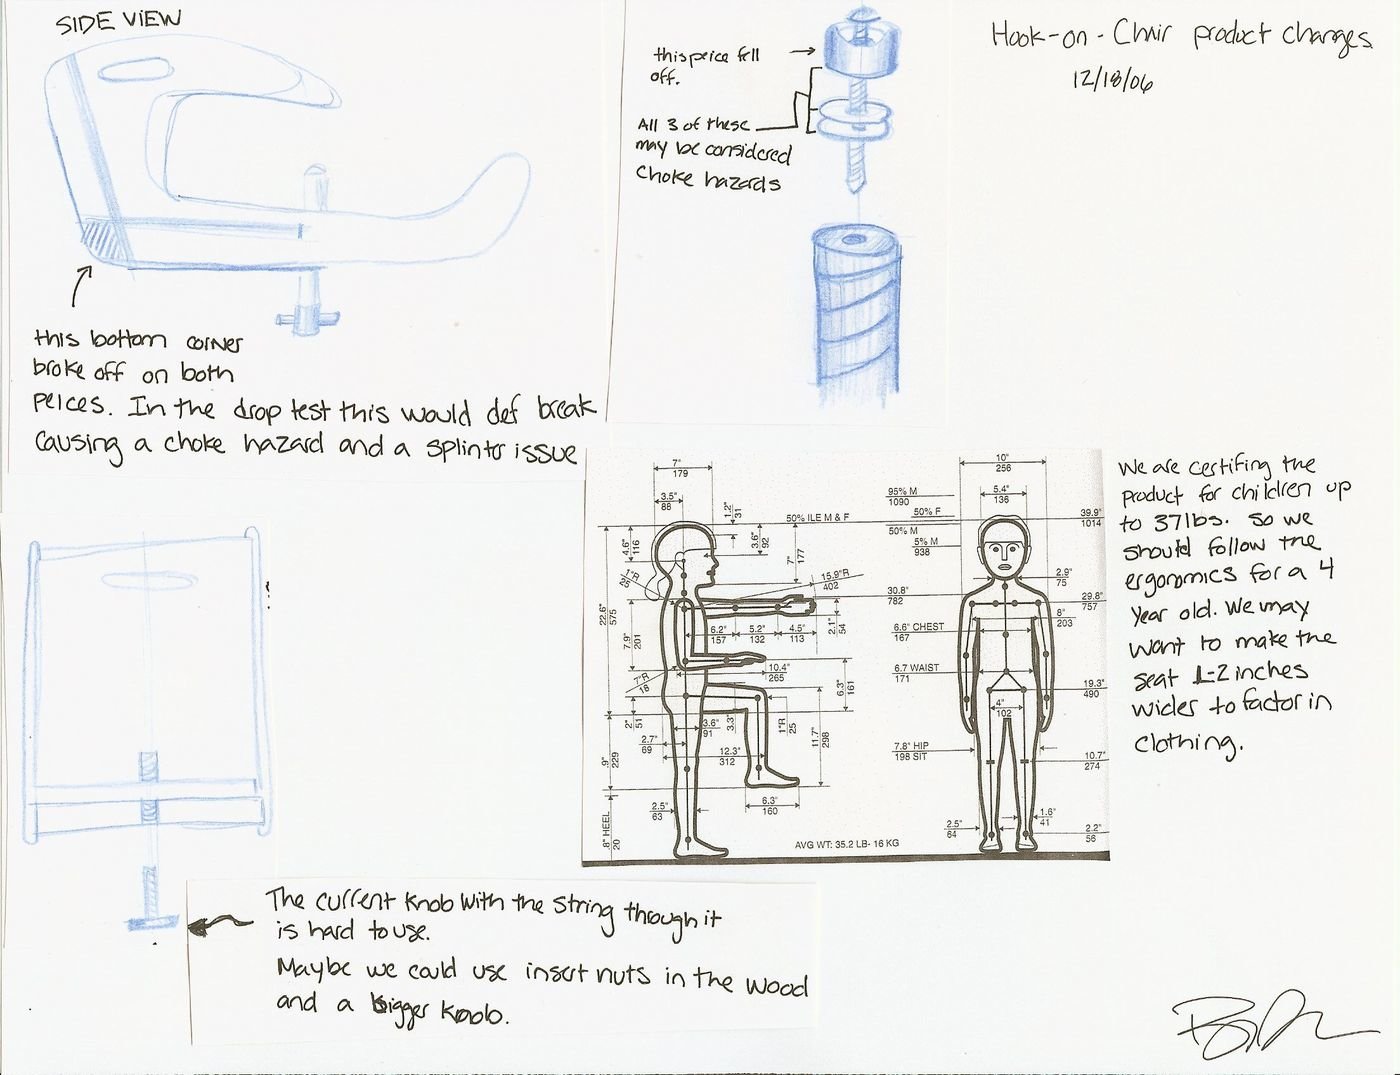 SIDE VIEW
this bottom corner
broke off on both
peices. In the drop test this would def break
causing a choke hazard and a splinter issue
this peice fell
off.
All 3 of these
may be considered
choke hazards
Hook-on-Chair product changes
12/18/06
7"
179
3.5"
88
1.2"
31
50% ILE M & F
4.6"
116
3.6"
92
7"
177
1"R
25
15.9"R
402
22.6"
575
7.9"
201
6.2"
157
5.2"
132
4.5"
113
2.1"
54
10.4"
265
7"R
18
6.3"
161
2"
51
3.6"
91
3.3"
1"R
25
11.7"
298
2.7"
69
12.3"
312
.9"
229
6.3"
160
2.5"
63
.8" HEEL
20
AVG WT: 35.2 LB- 16 KG
10"
256
95% M
1090
5.4"
136
50% F
50% M
5% M
938
39.9"
1014
2.9"
75
30.8"
782
29.8"
757
8"
203
6.6" CHEST
167
6.7 WAIST
171
19.3"
490
4"
102
7.8" HIP
198 SIT
10.7"
274
1.6"
41
2.5"
64
2.2"
56
We are certifing the
product for children up
to 37lbs. so we
should follow the
ergonomics for a 4
year old. We may
want to make the
seat 1-2 inches
wider to factor in
clothing.
The current knob with the string though it
is hard to use.
Maybe we could use insert nuts in the wood
and a bigger knob.